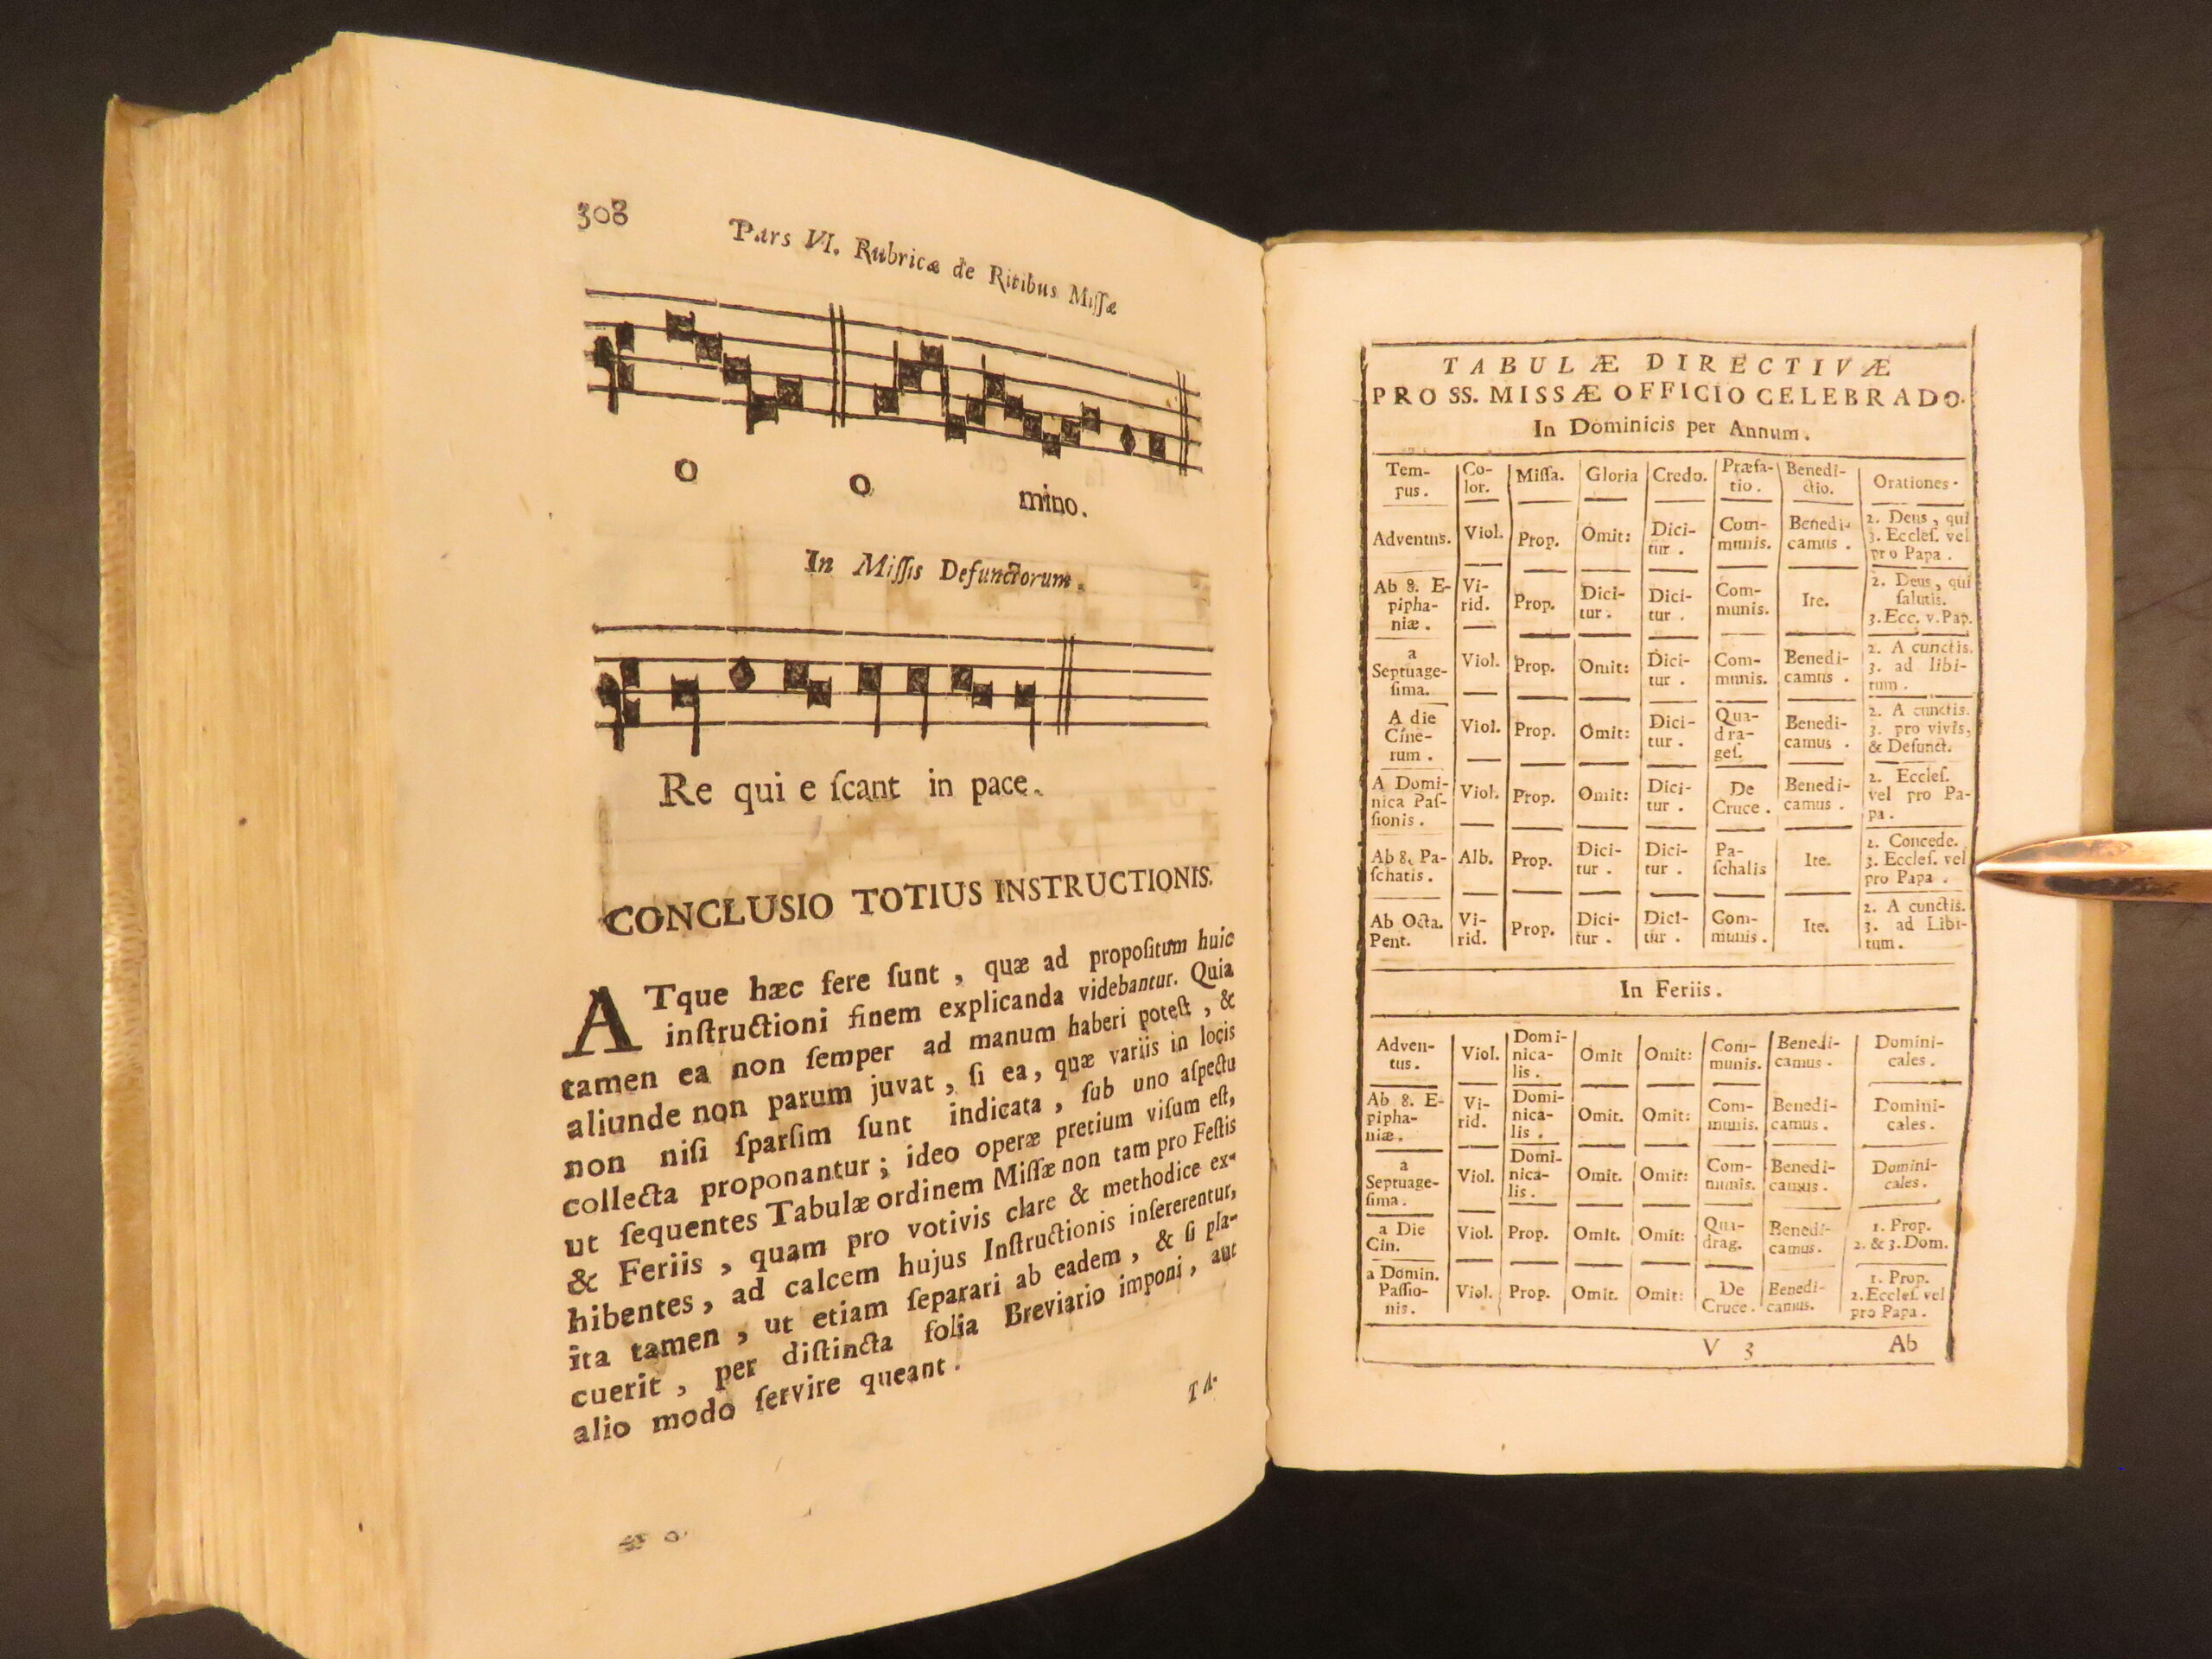 308
Pars VI. Rubricæ de Ritibus Miſſæ
o o mino.
In Miſſis Defunctorum.
Re qui e ſcant in pace.
CONCLUSIO TOTIUS INSTRUCTIONIS.
ATque hæc fere ſunt, quæ ad propoſitum huic
inſtructioni finem explicanda videbantur. Quia
tamen ea non ſemper ad manum haberi poteſt, &
aliunde non parum juvat, ſi ea, quæ variis in locis
non niſi ſparſim ſunt indicata, ſub uno aſpectu
collecta proponantur; ideo operæ pretium viſum eſt,
ut ſequentes Tabulæ ordinem Miſſæ non tam pro Feſtis
& Feriis, quam pro votivis clare & methodice ex-
hibentes, ad calcem hujus Inſtructionis inſererentur,
ita tamen, ut etiam ſeparari ab eadem, & ſi pla-
cuerit, per diſtincta folia Breviario imponi, aut
alio modo ſervire queant.
TA-
TABULÆ DIRECTIVÆ
PRO SS. MISSÆ OFFICIO CELEBRADO.
In Dominicis per Annum.
Tem-pus. Co-lor. Miſſa. Gloria Credo. Præfa-tio. Benedi-ctio. Orationes.
Adventus. Viol. Prop. Omit: Dici-tur. Com-munis. Benedi-camus. 2. Deus, qui 3. Eccleſ. vel pro Papa.
Ab 8. E-pipha-niæ. Vi-rid. Prop. Dici-tur. Dici-tur. Com-munis. Ite. 2. Deus, qui ſalutis. 3. Ecc. v. Pap.
a Septuage-ſima. Viol. Prop. Omit: Dici-tur. Com-munis. Benedi-camus. 2. A cunctis. 3. ad libi-tum.
A die Cine-rum. Viol. Prop. Omit: Dici-tur. Qua-dra-geſ. Benedi-camus. 2. A cunctis. 3. pro vivis, & Defunct.
A Domi-nica Paſ-ſionis. Viol. Prop. Omit: Dici-tur. De Cruce. Benedi-camus. 2. Eccleſ. vel pro Pa-pa.
Ab 8. Pa-ſchatis. Alb. Prop. Dici-tur. Dici-tur. Pa-ſchalis Ite. 2. Concede. 3. Eccleſ. vel pro Papa.
Ab Octa. Pent. Vi-rid. Prop. Dici-tur. Dici-tur. Com-munis. Ite. 2. A cunctis. 3. ad Libi-tum.
In Feriis.
Adven-tus. Viol. Domi-nica-lis. Omit Omit: Com-munis. Benedi-camus. Domini-cales.
Ab 8. E-pipha-niæ. Vi-rid. Domi-nica-lis. Omit. Omit: Com-munis. Benedi-camus. Domini-cales.
a Septuage-ſima. Viol. Domi-nica-lis. Omit. Omit: Com-munis. Benedi-camus. Domini-cales.
a Die Cin. Viol. Prop. Omit. Omit: Qua-drag. Benedi-camus. 1. Prop. 2. & 3. Dom.
a Domin. Paſſio-nis. Viol. Prop. Omit. Omit: De Cruce. Benedi-camus. 1. Prop. 2. Eccleſ. vel pro Papa.
V 3 Ab